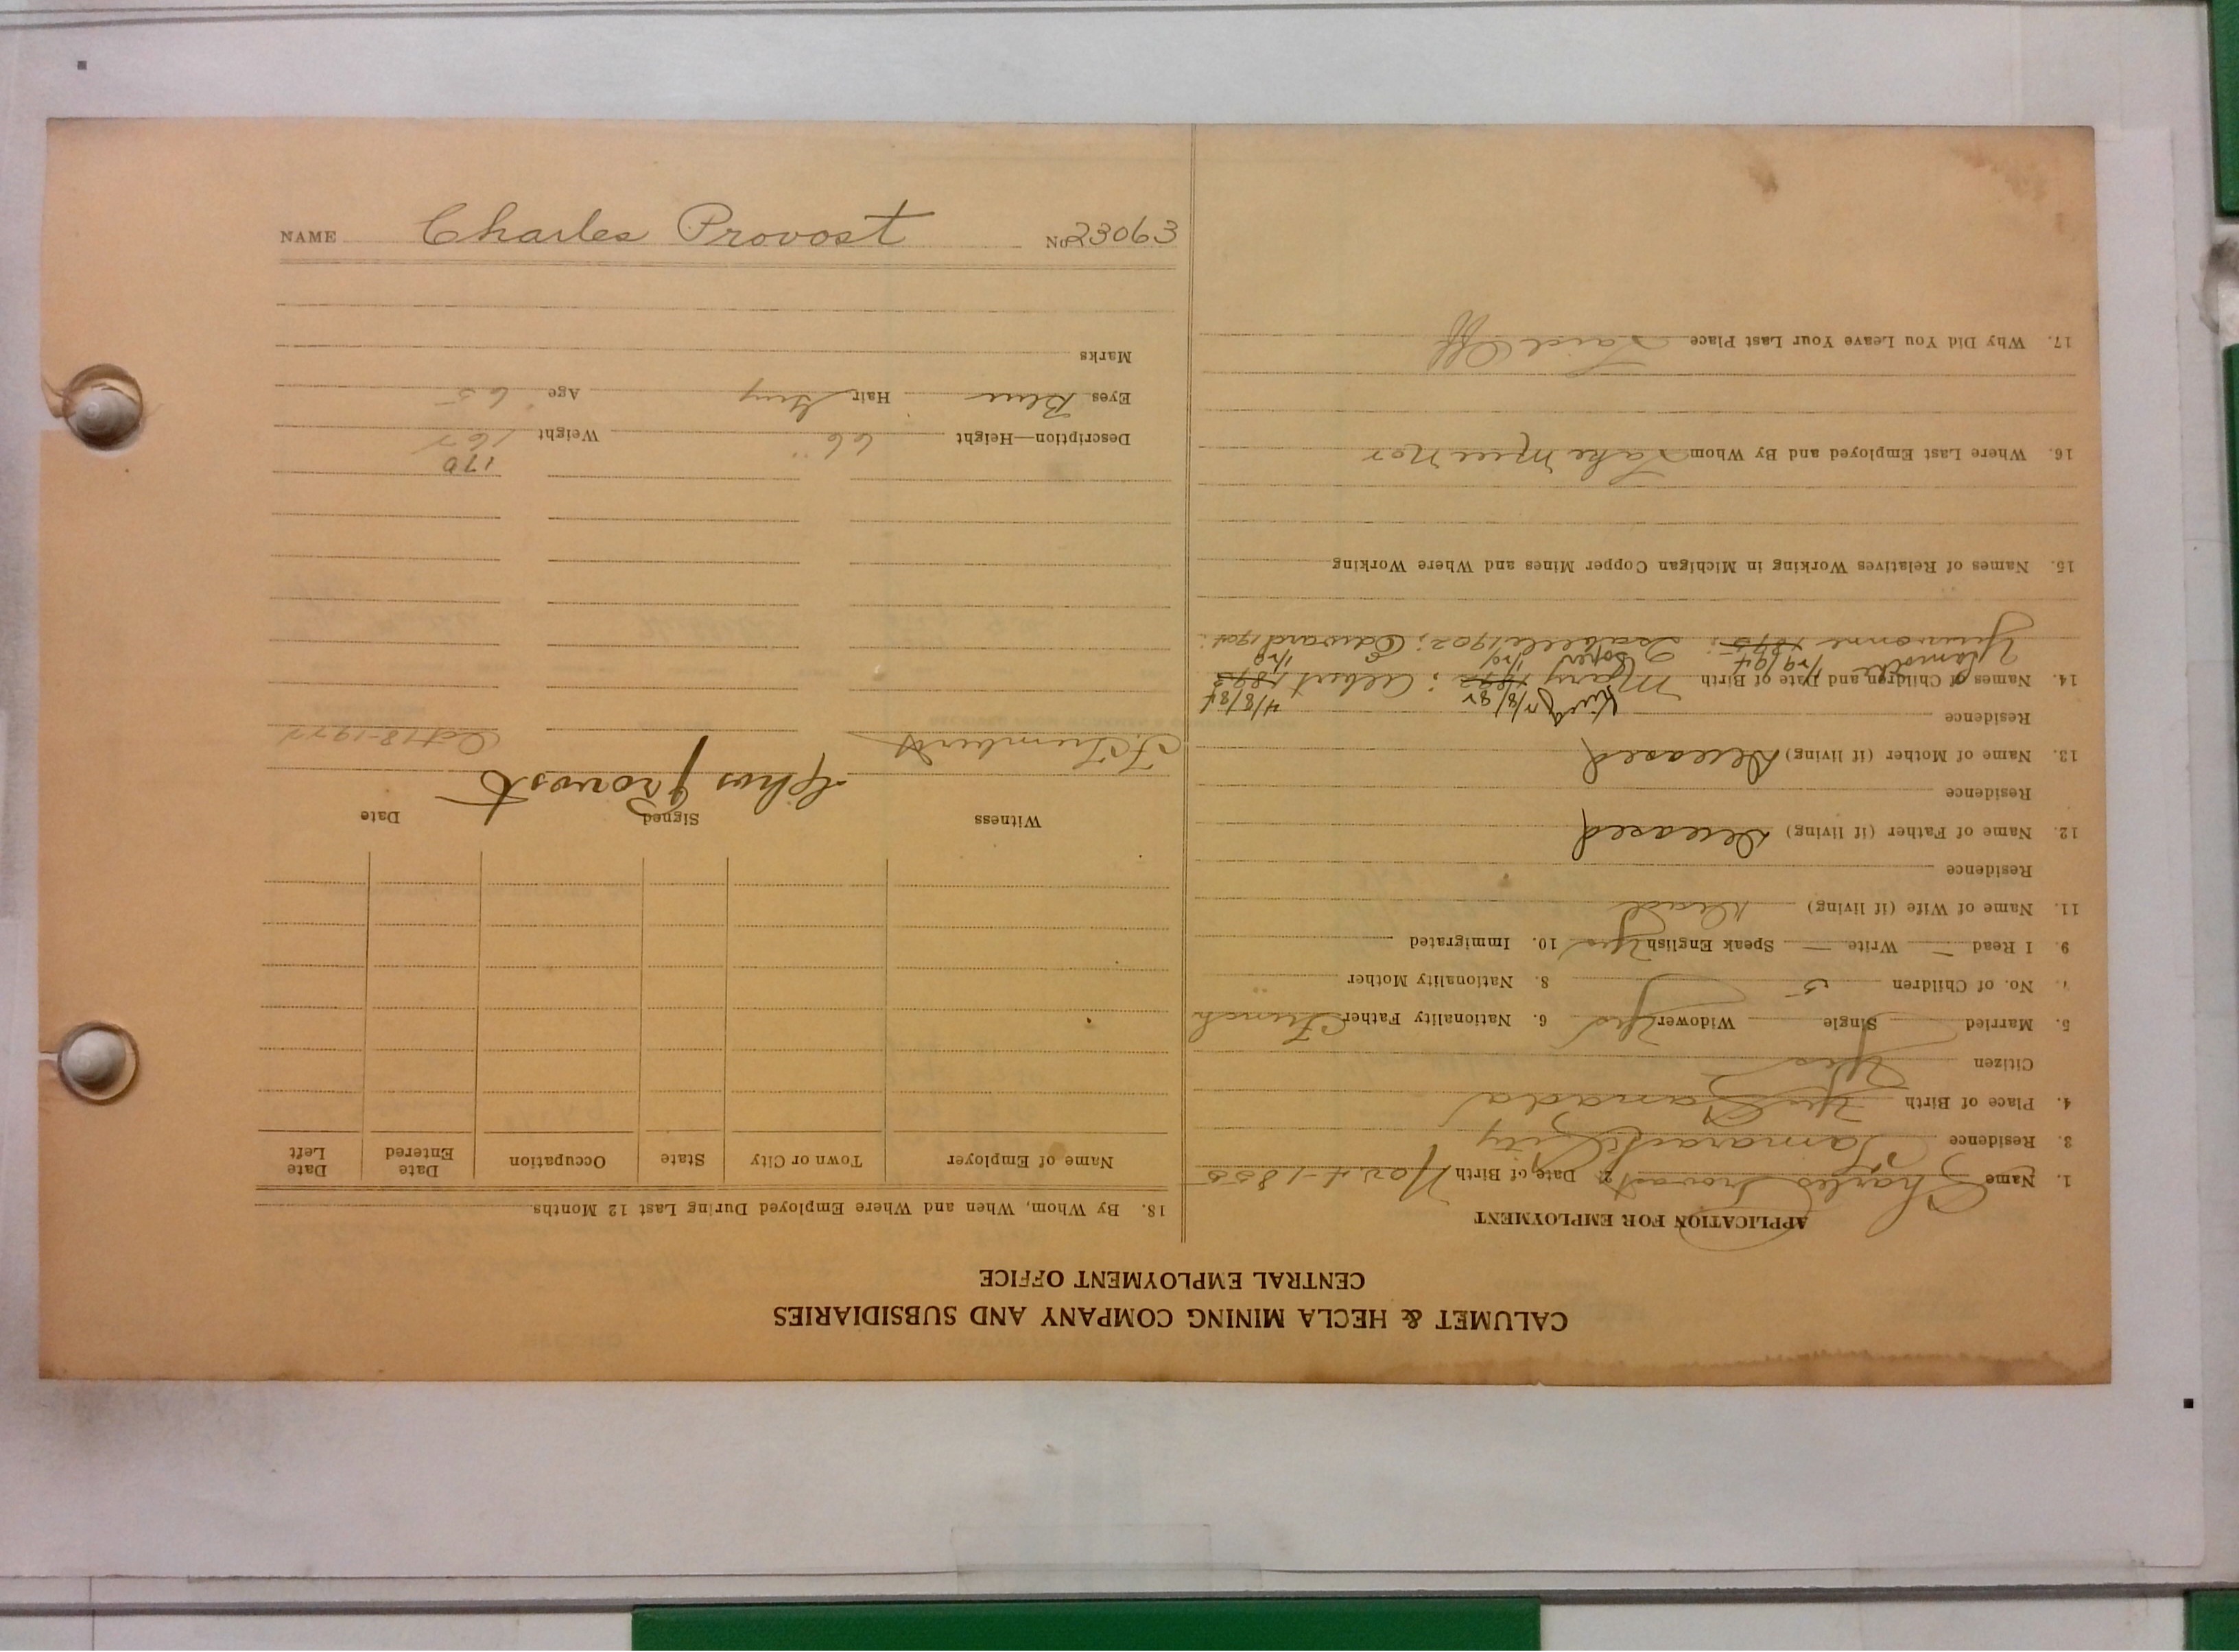 NAME Charles Provost No. 23063
CALUMET & HECLA MINING COMPANY AND SUBSIDIARIES
CENTRAL EMPLOYMENT OFFICE
APPLICATION FOR EMPLOYMENT
1. Name Charles Provost 2. Date of Birth Nov 4-1855
3. Residence Tamarack City
4. Place of Birth Canada
Citizen Yes
5. Married Single Widower Yes 6. Nationality Father French
7. No. of Children 5 8. Nationality Mother
9. I Read — Write — Speak English Yes 10. Immigrated
11. Name of Wife (if living) Dead
Residence
12. Name of Father (if living) Deceased
Residence
13. Name of Mother (if living) Deceased
Residence
14. Names of Children and Date of Birth Mary ; Albert 1893
1895; Isabelle 1902; Edward 1905
15. Names of Relatives Working in Michigan Copper Mines and Where Working
16. Where Last Employed and By Whom Lake
17. Why Did You Leave Your Last Place Laid Off
18. By Whom, When and Where Employed During Last 12 Months
Name of Employer Town or City State Occupation Date Entered Date Left
Witness Signed Date
Chas Provost
Oct 18-1922
170
Description—Height 66 Weight
Eyes Blue Hair Grey Age 65
Marks